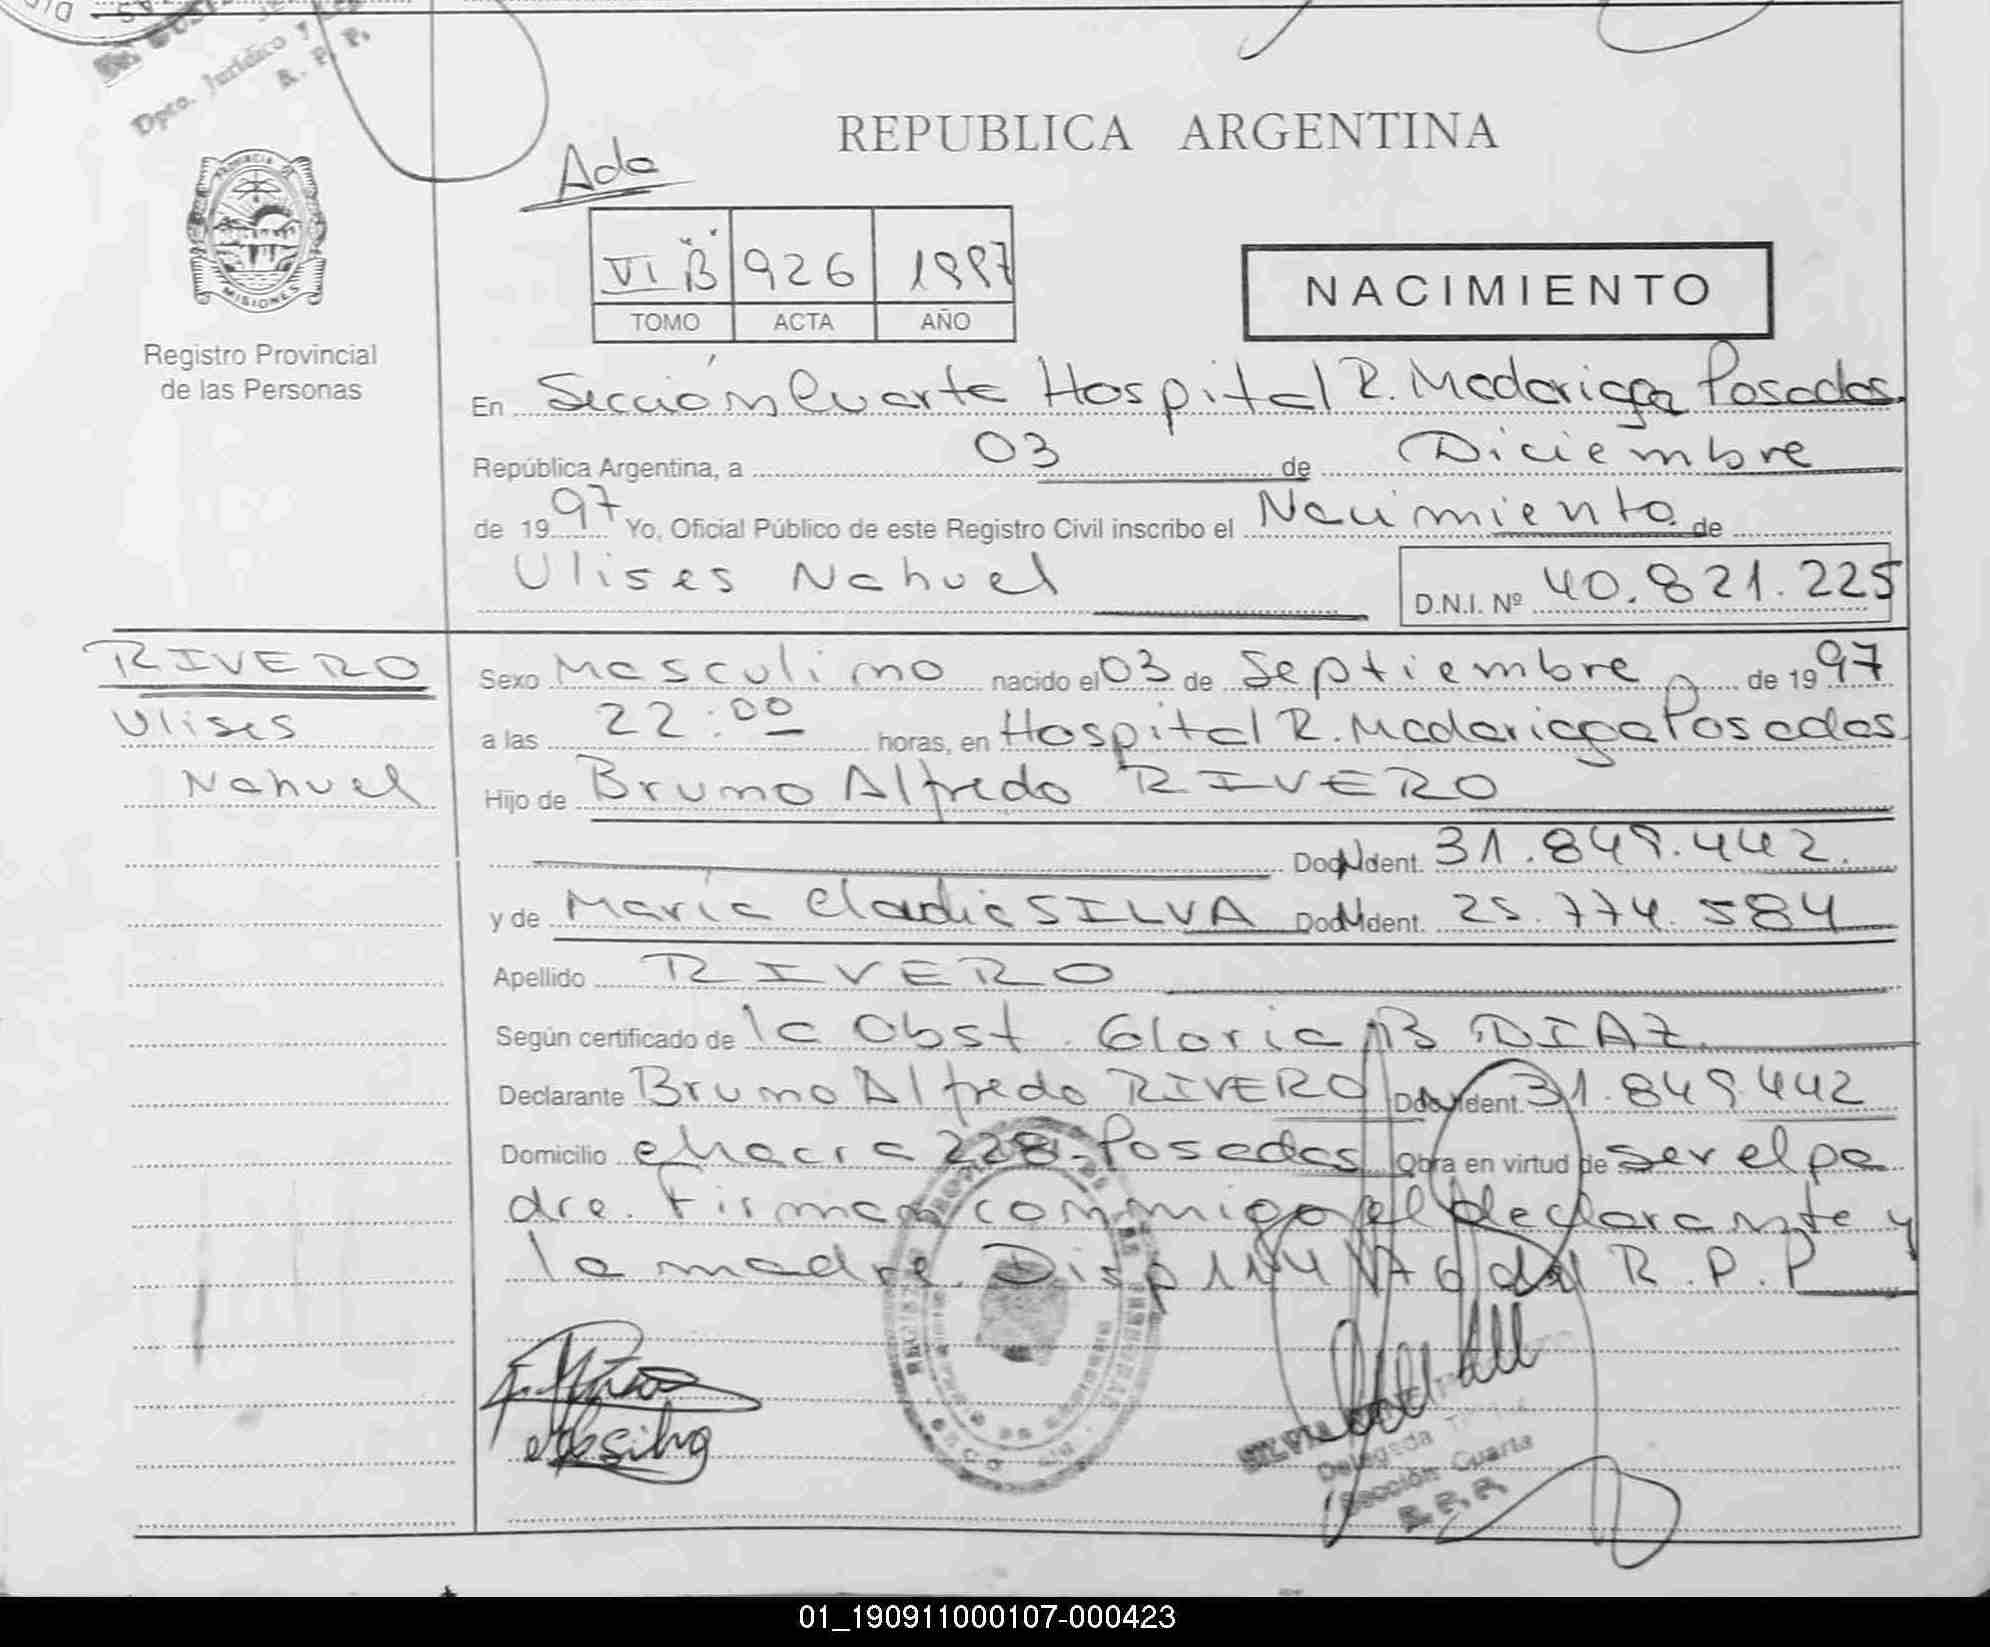 Dpto. Jurídico y
R. P. P.
REPUBLICA ARGENTINA
Ada
VI "B" 926 1997
TOMO ACTA AÑO
NACIMIENTO
PROVINCIA DE
MISIONES
Registro Provincial
de las Personas
En Sección Cuarta Hospital R. Madariaga Posadas
República Argentina, a 03 de Diciembre
de 1997 Yo, Oficial Público de este Registro Civil inscribo el Nacimiento de
Ulises Nahuel D.N.I. Nº 40.821.225
RIVERO
Ulises
Nahuel
Sexo Masculino nacido el 03 de Septiembre de 1997
a las 22:00 horas, en Hospital R. Madariaga Posadas
Hijo de Bruno Alfredo RIVERO
Doc. Ident. 31.849.442.
y de María Claudia SILVA Doc. Ident. 25.774.584
Apellido RIVERO
Según certificado de la Obst. Gloria B DIAZ.
Declarante Bruno Alfredo RIVERO Doc. Ident. 31.849.442
Domicilio chacra 228-Posadas Obra en virtud de ser el pa
dre. Firman conmigo el declarante y
la madre. Disp 114/76 del R.P.P
SILVIA
Delegada
Sección Cuarta
R. P. P.
01_190911000107-000423